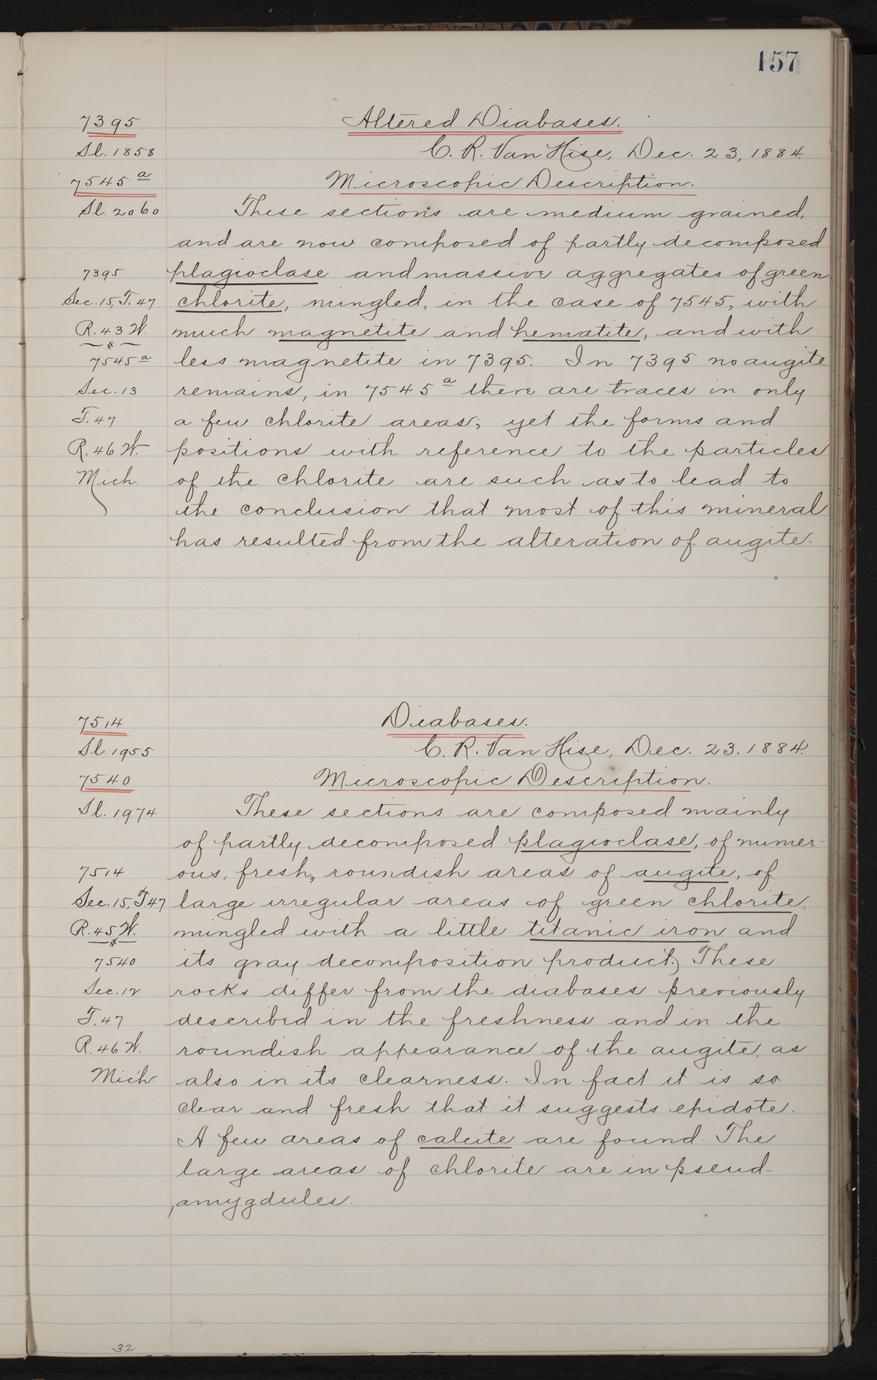 157
7395 Altered Diabases.
Sl. 1858 C. R. Van Hise, Dec. 23, 1884.
7545 a Microscopic Description.
Sl. 2060 These sections are medium grained,
and are now composed of partly decomposed
7395 plagioclase and massive aggregates of green
Sec. 15 T. 47 chlorite, mingled, in the case of 7545, with
R. 43 W. much magnetite and hematite, and with
7545 a less magnetite in 7395. In 7395 no augite
Sec. 13 remains, in 7545 a there are traces in only
T. 47 a few chlorite areas; yet the forms and
R. 46 W. positions with reference to the particles
Mich of the chlorite are such as to lead to
the conclusion that most of this mineral
has resulted from the alteration of augite.
7514 Diabases.
Sl. 1955 C. R. Van Hise, Dec. 23. 1884.
7540 Microscopic Description.
Sl. 1974 These sections are composed mainly
of partly decomposed plagioclase, of numer-
7514 ous, fresh, roundish areas of augite, of
Sec. 15, T. 47 large irregular areas of green chlorite,
R. 45 W. mingled with a little titanic iron and
7540 its gray decomposition product, These
Sec. 12 rocks differ from the diabases previously
T. 47 described in the freshness and in the
R. 46 W. roundish appearance of the augite, as
Mich also in its clearness. In fact it is so
clear and fresh that it suggests epidote.
A few areas of calcite are found. The
large areas of chlorite are in pseud-
amygdules.
32